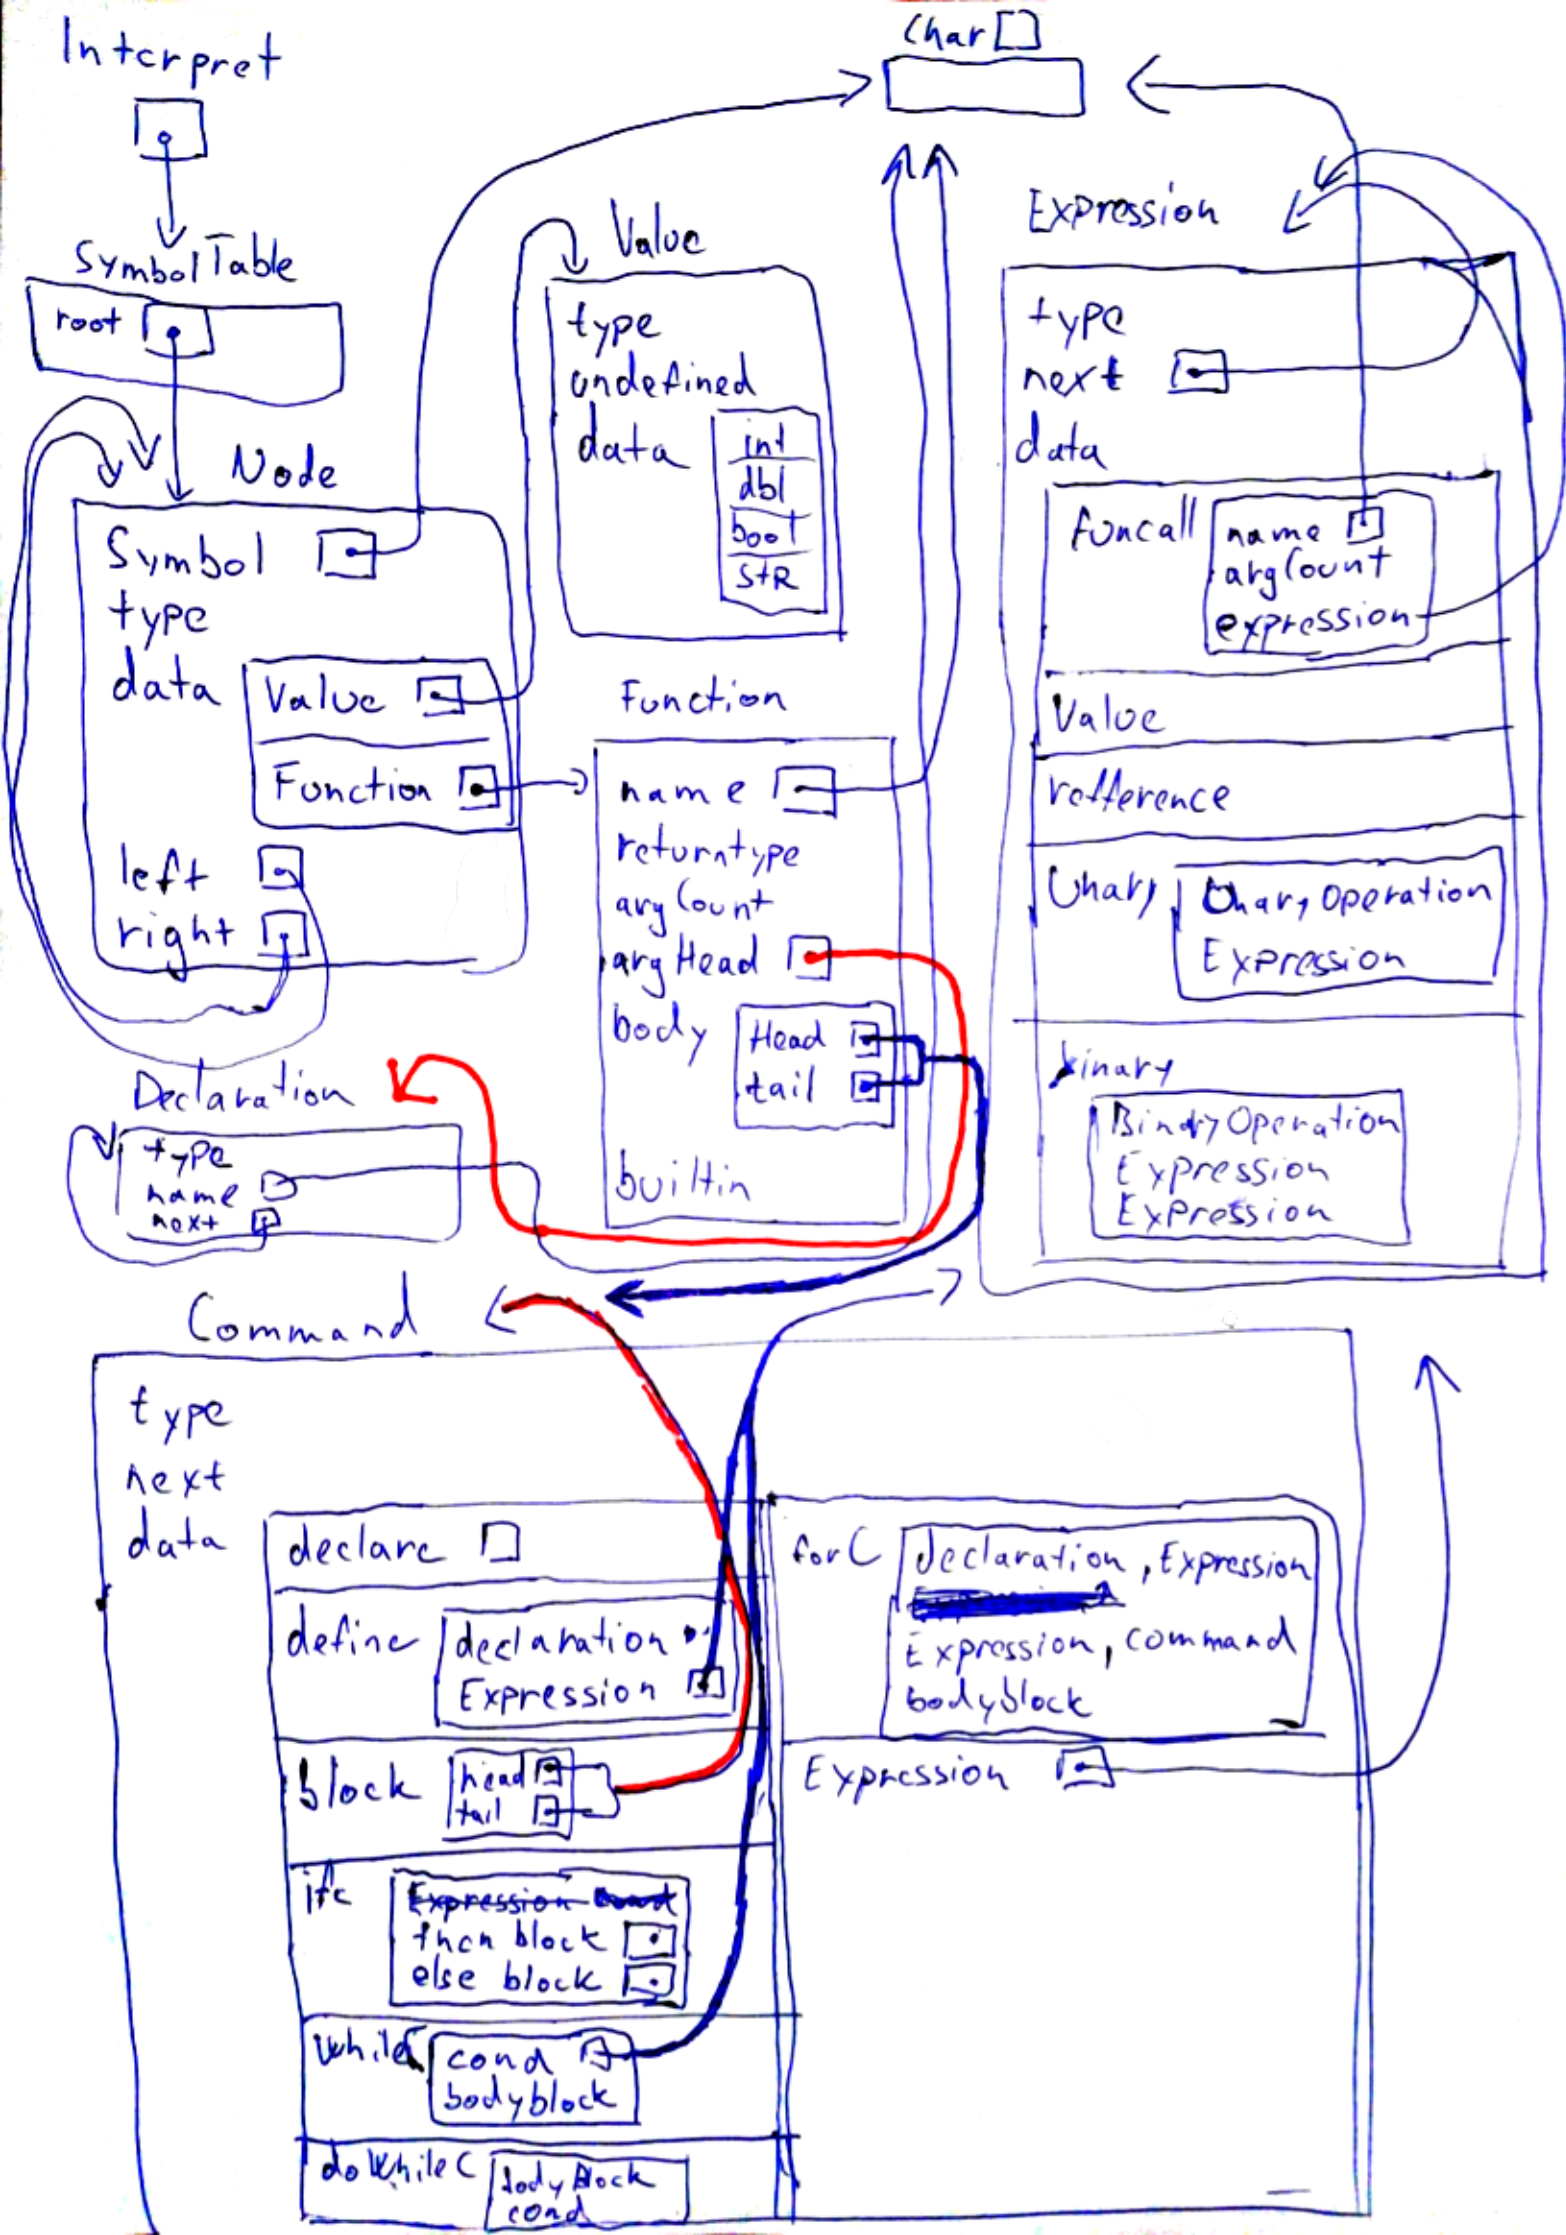 Interpret
Char[]
SymbolTable
root
Node
Symbol
type
data
Value
Function
left
right
Value
type
undefined
data
int
dbl
bool
StR
Function
name
returntype
argCount
argHead
body
Head
tail
builtin
Expression
type
next
data
funcall
name
argCount
expression
Value
refference
Unary
UnaryOperation
Expression
binary
BinaryOperation
Expression
Expression
Declaration
type
name
next
Command
type
next
data
declare
define
declaration
Expression
block
head
tail
ifc
Expression
then block
else block
whileC
cond
bodyblock
doWhileC
bodyBlock
cond
forC
declaration, Expression
Expression, command
bodyblock
Expression